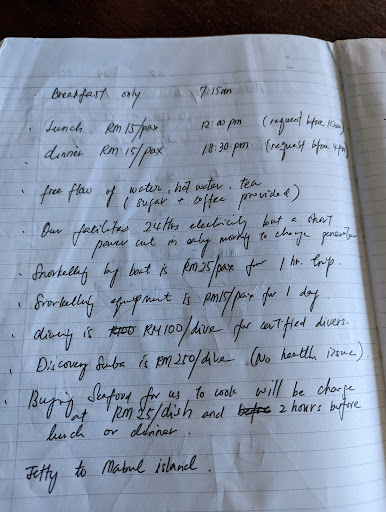 · Breakfast only 7:15am
· Lunch RM 15/pax 12:00 pm (request before 10am)
dinner RM 15/pax 18:30 pm (request before 4pm)
· free flow of water, hot water, tea
(sugar + coffee provided)
· Our facilities 24hrs electricity but a short
power cut in early morning to change generator
· Snorkelling by boat is RM25/pax for 1 hr. trip.
· Snorkelling equipment is RM15/pax for 1 day.
· diving is RM100/dive for certified divers.
· Discovery Scuba is RM250/dive (No health issue).
· Buying Seafood for us to cook will be charge
at RM25/dish and 2 hours before
lunch or dinner.
Jetty to Mabul island.